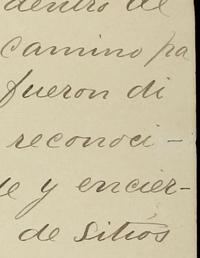 dentro de
camino pa
fueron di
reconoci-
e y encier-
de Sitios